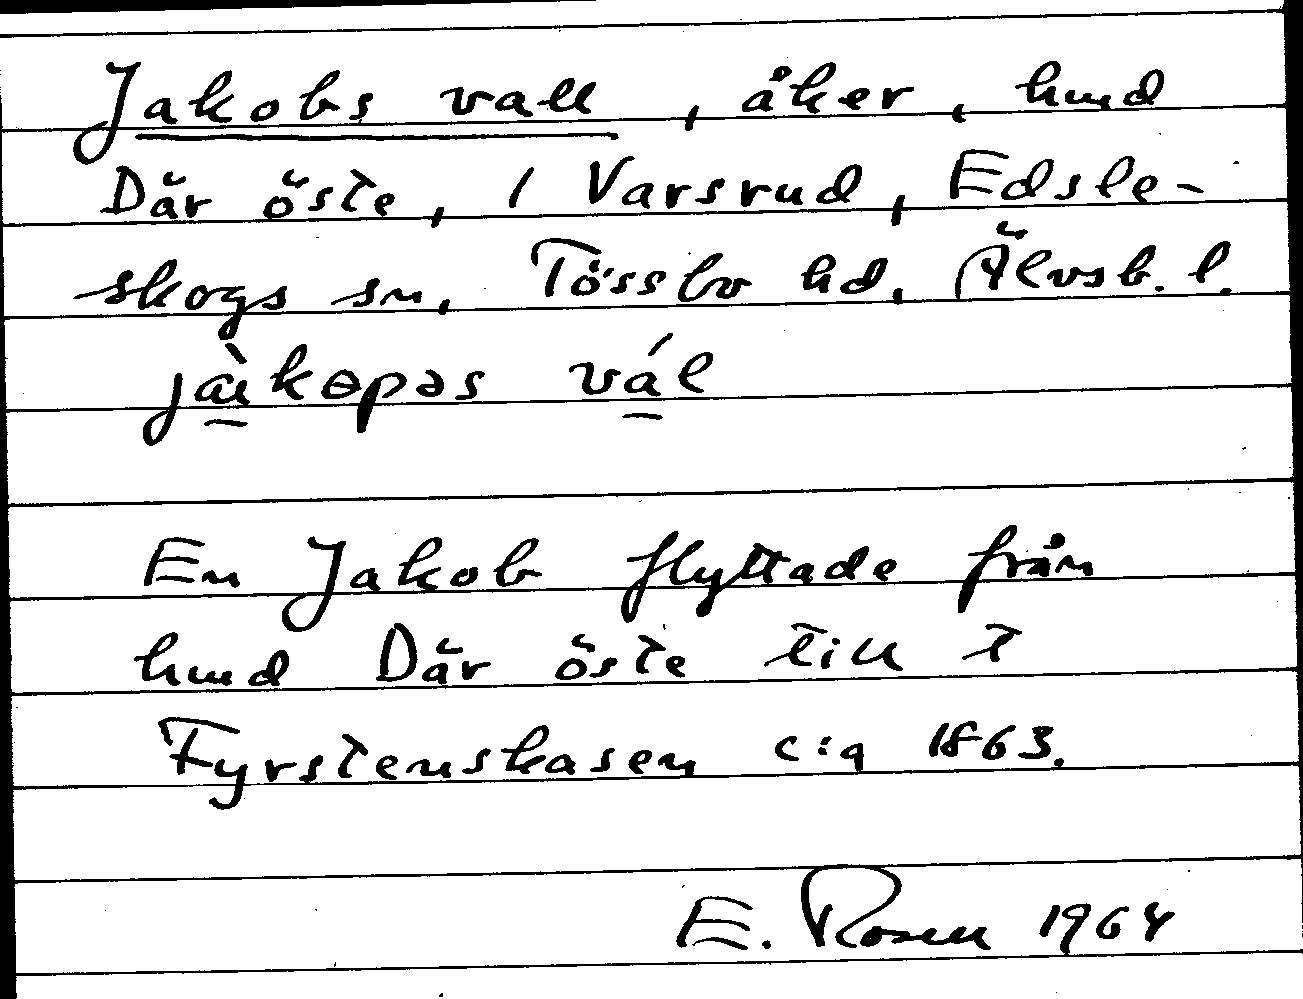 Jakobs vall, åker, hmd
Där öste, 1 Varsrud, Edsle-
skogs sn, Tössbo hd, Älvsb. l.
jàkɵpəs vál
En Jakob flyttade från
hmd Där öste till t
Fyrstenskasen c:a 1863.
E. Rosen 1964